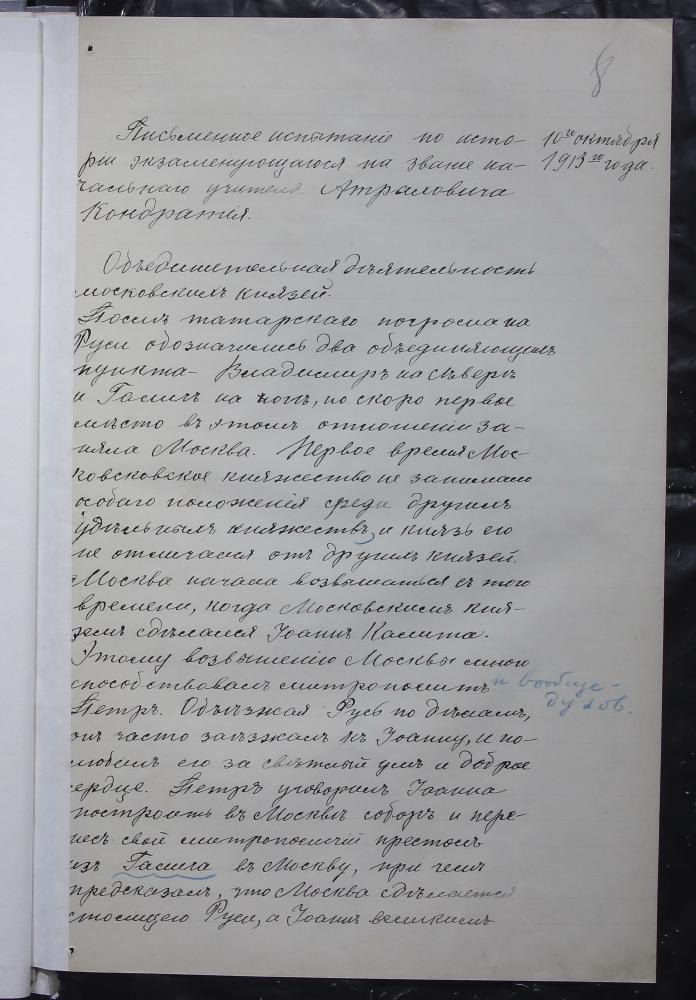 8
Письменное испытаніе по исто-
ріи экзаменующагося на званіе на-
чальнаго учителя Атраховича
Кондратія.
10го октября
1913го года.
Объединительная дѣятельность
московскихъ князей.
Послѣ татарскаго погрома на
Руси обозначились два объединяющихъ
пункта – Владимиръ на сѣверѣ
и Галичъ на югѣ, но скоро первое
мѣсто въ этомъ отношеніи за-
няла Москва. Первое время Мос-
ковсковское княжество не занимало
особаго положенія среди другихъ
удѣльныхъ княжествъ, и князь его
не отличался отъ другихъ князей.
Москва начала возвышаться съ того
времени, когда Московскимъ кня-
земъ сдѣлался Іоаннъ Калита.
Этому возвышенію Москвы много
способствовалъ митрополитъ
и вообще-
духов.
Петръ. Объѣзжая Русь по дѣламъ,
онъ часто заѣзжалъ къ Іоанну, и по-
любилъ его за свѣтлый умъ и доброе
сердце. Петръ уговорилъ Іоанна
построить въ Москвѣ соборъ и пере-
несъ свой митрополичій престолъ
изъ Галича въ Москву, при чемъ
предсказалъ, что Москва сдѣлается
столицею Руси, а Іоаннъ великимъ